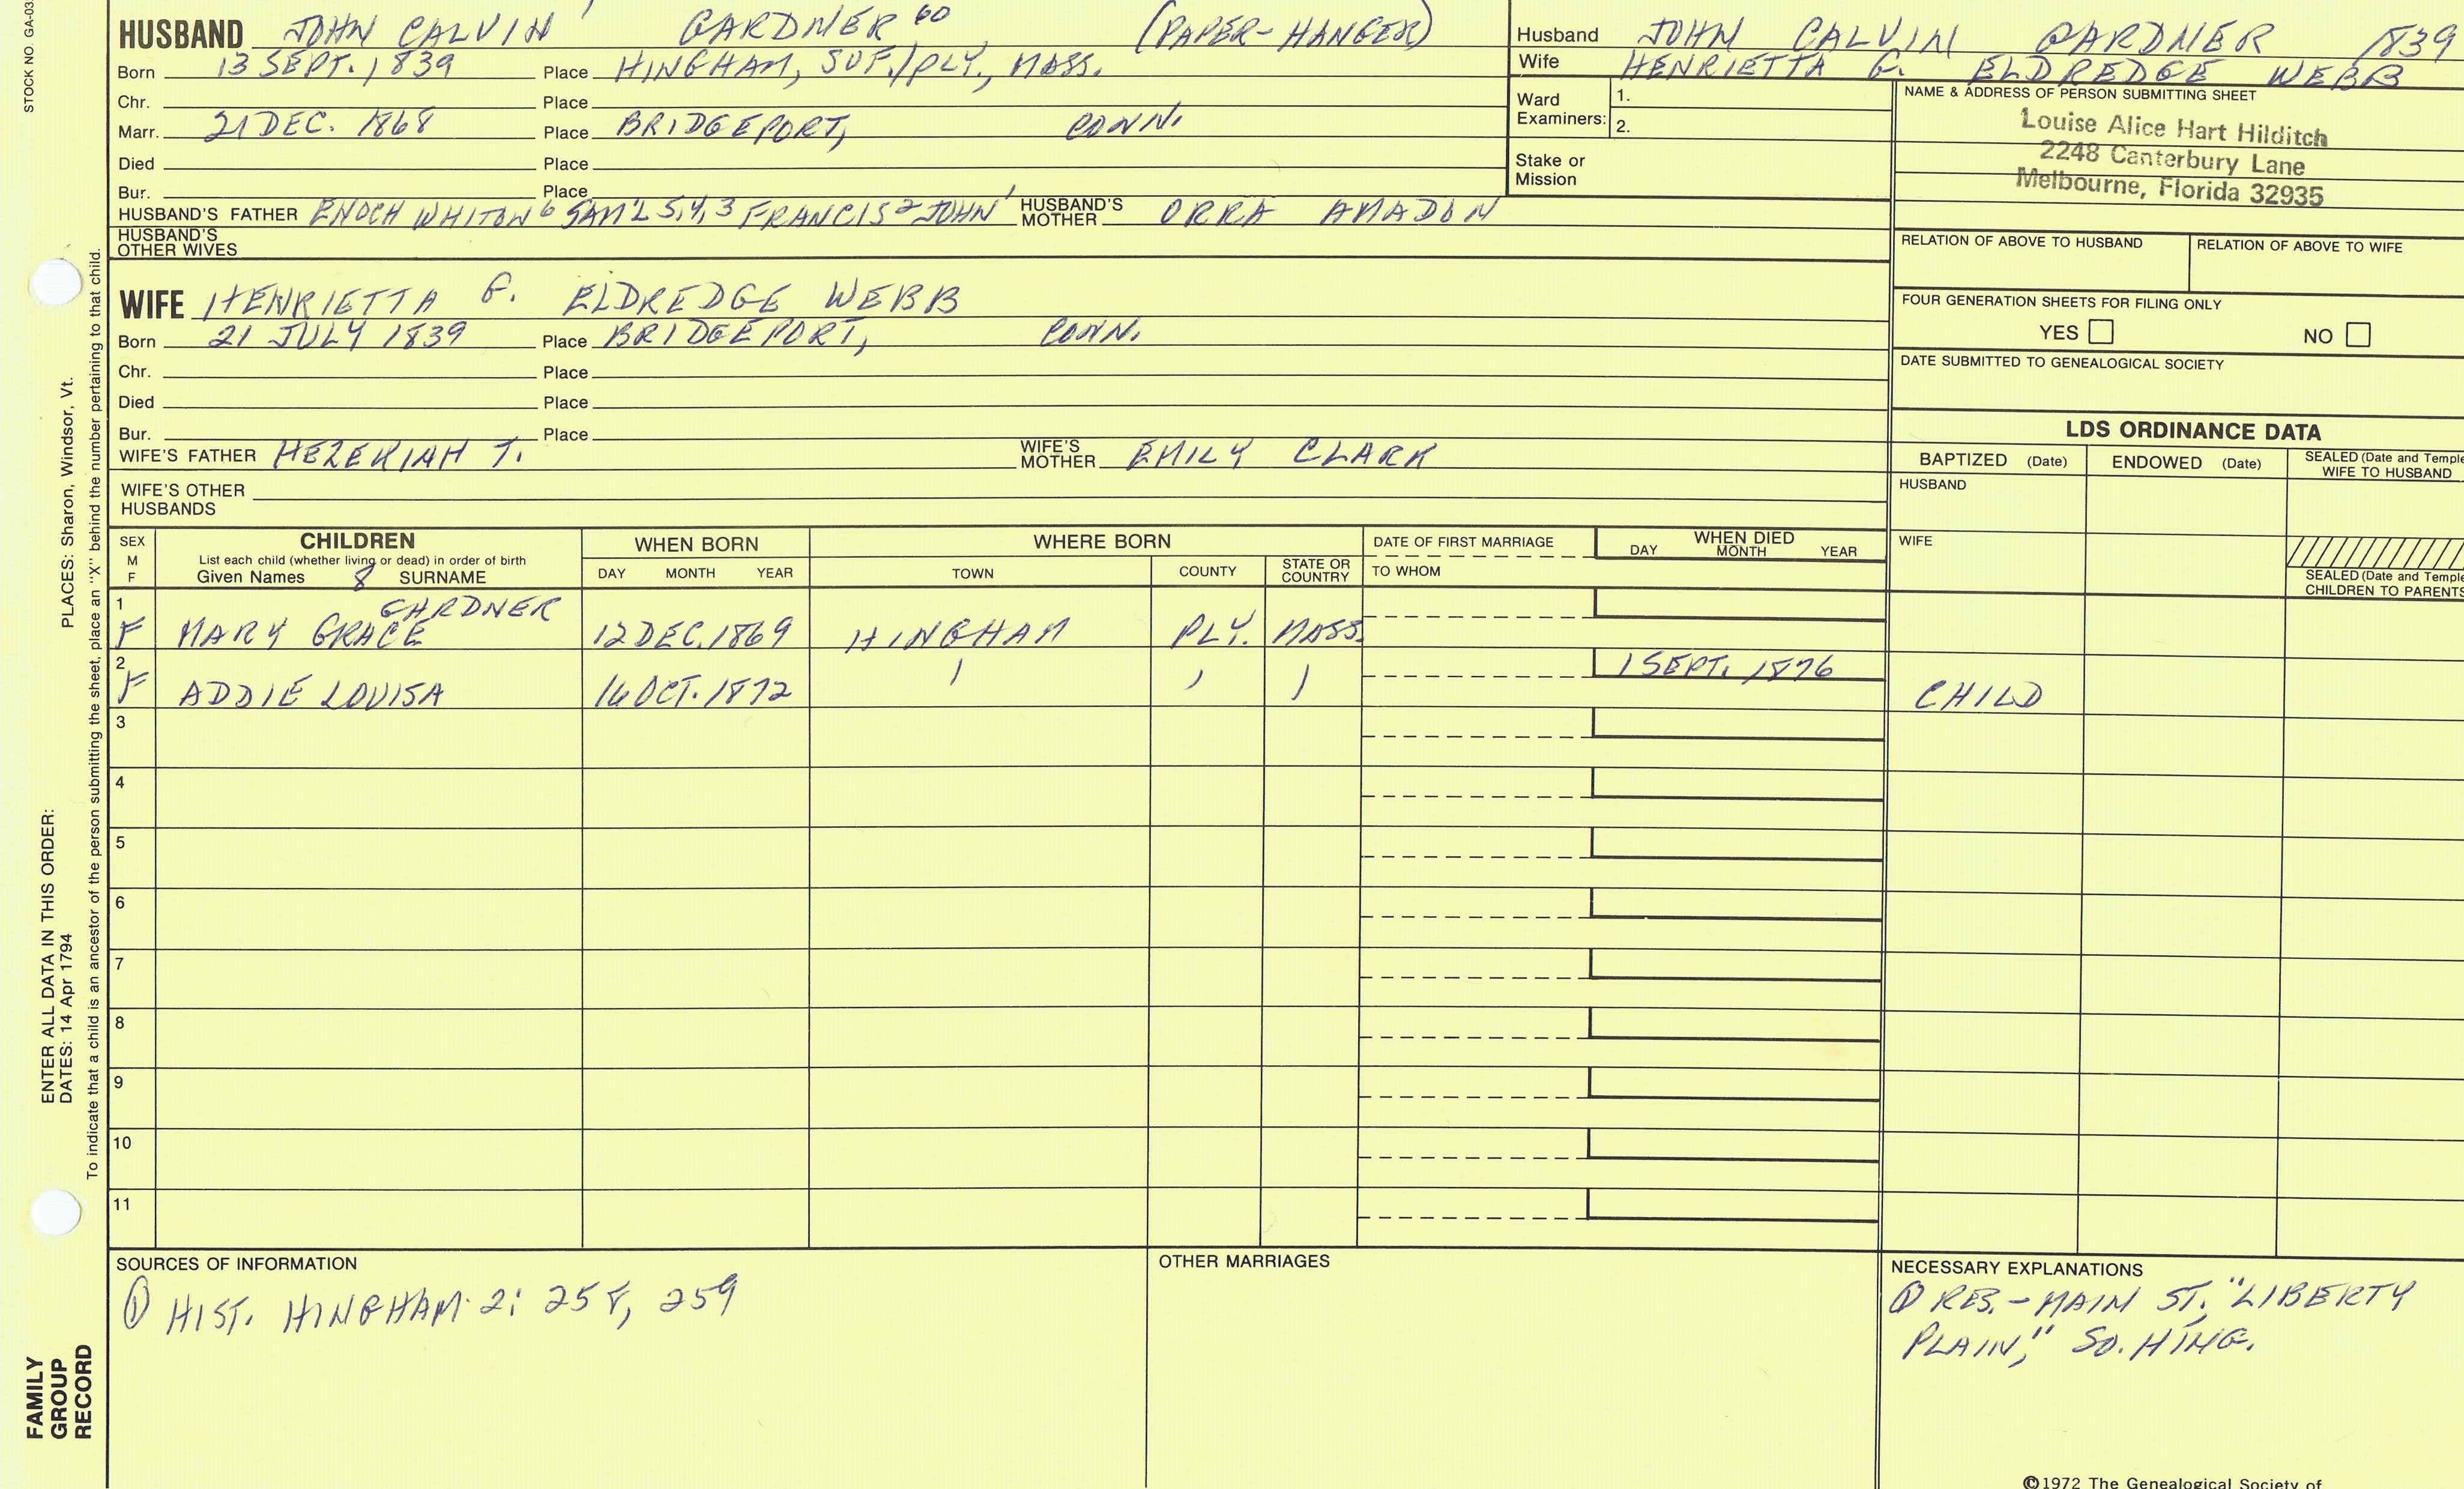 STOCK NO. GA-03
HUSBAND JOHN CALVIN GARDNER 60 (PAPER-HANGER)
Born 13 SEPT. 1839 Place HINGHAM, SUF./PLY., MASS.
Chr. Place
Marr. 21 DEC. 1868 Place BRIDGEPORT, CONN.
Died Place
Bur. Place
HUSBAND'S FATHER ENOCH WHITON 6 SAM'L 5,4,3 FRANCIS 2 JOHN 1 HUSBAND'S MOTHER ORRA AMADON
HUSBAND'S OTHER WIVES
Husband JOHN CALVIN GARDNER 1839
Wife HENRIETTA G. ELDREDGE WEBB
Ward Examiners: 1.
2.
Stake or Mission
NAME & ADDRESS OF PERSON SUBMITTING SHEET
Louise Alice Hart Hilditch
2248 Canterbury Lane
Melbourne, Florida 32935
RELATION OF ABOVE TO HUSBAND RELATION OF ABOVE TO WIFE
FOUR GENERATION SHEETS FOR FILING ONLY
YES NO
DATE SUBMITTED TO GENEALOGICAL SOCIETY
WIFE HENRIETTA G. ELDREDGE WEBB
Born 21 JULY 1839 Place BRIDGEPORT, CONN.
Chr. Place
Died Place
Bur. Place
WIFE'S FATHER HEZEKIAH T. WIFE'S MOTHER EMILY CLARK
WIFE'S OTHER HUSBANDS
LDS ORDINANCE DATA
BAPTIZED (Date) ENDOWED (Date) SEALED (Date and Temple
WIFE TO HUSBAND
HUSBAND
WIFE
SEALED (Date and Temple
CHILDREN TO PARENTS
SEX M F
CHILDREN
List each child (whether living or dead) in order of birth
Given Names 8 SURNAME
WHEN BORN
DAY MONTH YEAR
WHERE BORN
TOWN COUNTY STATE OR COUNTRY
DATE OF FIRST MARRIAGE
TO WHOM
WHEN DIED
DAY MONTH YEAR
1 GARDNER
F MARY GRACE 12 DEC. 1869 HINGHAM PLY. MASS.
2 1 SEPT. 1876
F ADDIE LOUISA 16 OCT. 1872 ' ' ' CHILD
3
4
5
6
7
8
9
10
11
SOURCES OF INFORMATION
① HIST. HINGHAM 2: 258, 259
OTHER MARRIAGES
NECESSARY EXPLANATIONS
① RES. – MAIN ST. "LIBERTY
PLAIN," SO. HING.
©1972 The Genealogical Society of
PLACES: Sharon, Windsor, Vt.
To indicate that a child is an ancestor of the person submitting the sheet, place an "X" behind the number pertaining to that child.
ENTER ALL DATA IN THIS ORDER:
DATES: 14 Apr 1794
FAMILY
GROUP
RECORD